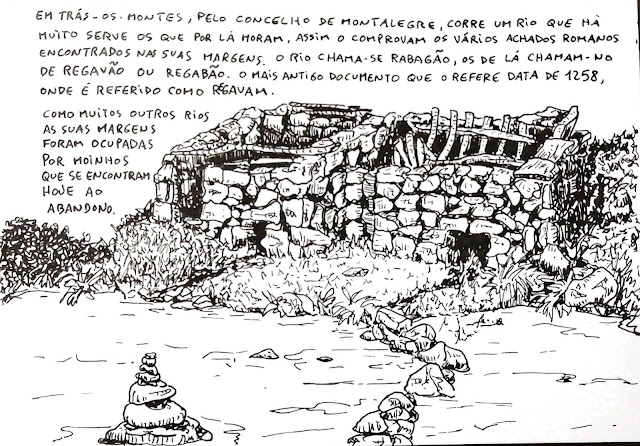 EM TRÁS-OS-MONTES, PELO CONCELHO DE MONTALEGRE, CORRE UM RIO QUE HÁ
MUITO SERVE OS QUE POR LÁ MORAM. ASSIM O COMPROVAM OS VÁRIOS ACHADOS ROMANOS
ENCONTRADOS NAS SUAS MARGENS. O RIO CHAMA-SE RABAGÃO, OS DE LÁ CHAMAM-NO
DE REGAVÃO OU REGABÃO. O MAIS ANTIGO DOCUMENTO QUE O REFERE DATA DE 1258,
ONDE É REFERIDO COMO REGAVAM.
COMO MUITOS OUTROS RIOS
AS SUAS MARGENS
FORAM OCUPADAS
POR MOINHOS
QUE SE ENCONTRAM
HOJE AO
ABANDONO.